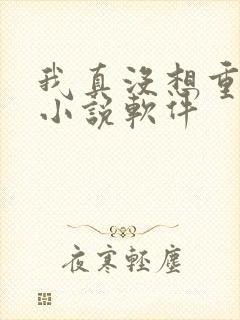 我真没想重
小說軟件
夜寒輕塵